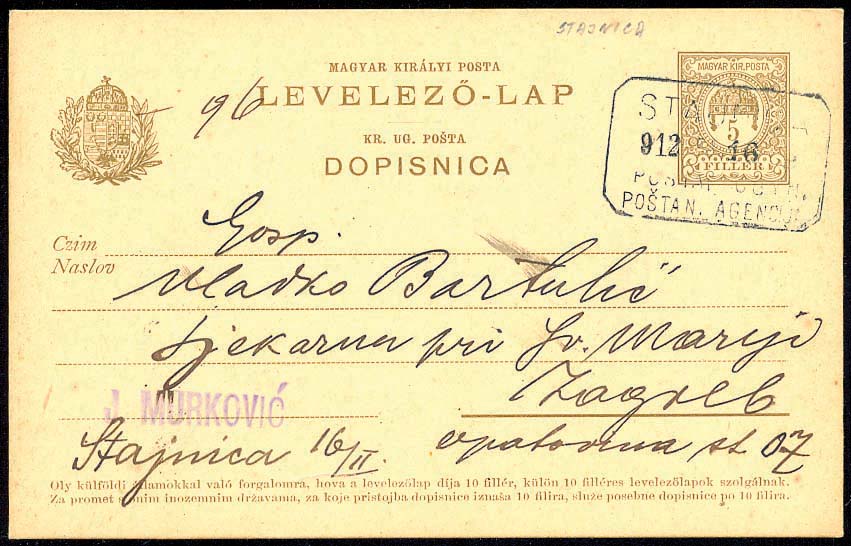 STAJNICA
MAGYAR KIRÁLYI POSTA
LEVELEZŐ-LAP
KR. UG. POŠTA
DOPISNICA
96
MAGYAR KIR. POSTA
5
FILLÉR
912 16
POŠTAN. AGENCIJA
Czim
Naslov
Gosp.
Vladko Bartulić
Ljekarna pri Sv. Mariji
Zagreb
J. MURKOVIĆ
Stajnica 16/II
opatovina
Oly külföldi államokkal való forgalomra, hova a levelezőlap díja 10 fillér, külön 10 filléres levelezőlapok szolgálnak.
Za promet s onim inozemnim državama, za koje pristojba dopisnice iznaša 10 filira, služe posebne dopisnice po 10 filira.